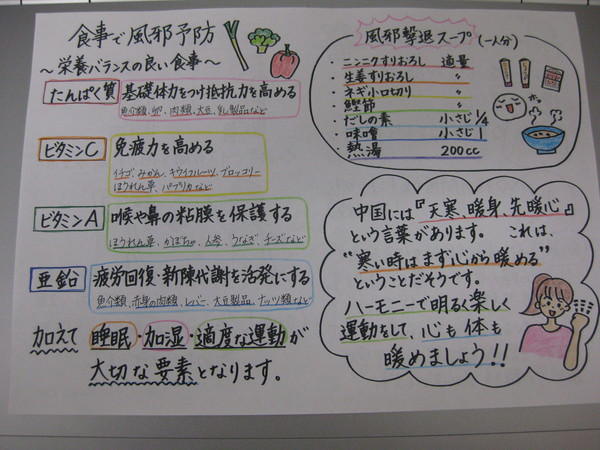 食事で風邪予防
～栄養バランスの良い食事～
たんぱく質 基礎体力をつけ抵抗力を高める
魚介類、卵、肉類、大豆、乳製品など
ビタミンC 免疫力を高める
イチゴ、みかん、キウイフルーツ、ブロッコリー
ほうれん草、パプリカなど
ビタミンA 喉や鼻の粘膜を保護する
ほうれん草、かぼちゃ、人参、うなぎ、チーズなど
亜鉛 疲労回復・新陳代謝を活発にする
魚介類、赤身の肉類、レバー、大豆製品、ナッツ類など
加えて 睡眠・加湿・適度な運動が
大切な要素となります。
風邪撃退スープ(一人分)
・ニンニクすりおろし 適量
・生姜すりおろし 〃
・ネギ小口切り 〃
・鰹節 〃
・だしの素 小さじ1/4
・味噌 小さじ1
・熱湯 200cc
中国には『天寒、暖身、先暖心』
という言葉があります。 これは、
“寒い時はまず心から暖める”
ということだそうです。
ハーモニーで明るく楽しく
運動をして、心も体も
暖めましょう!!